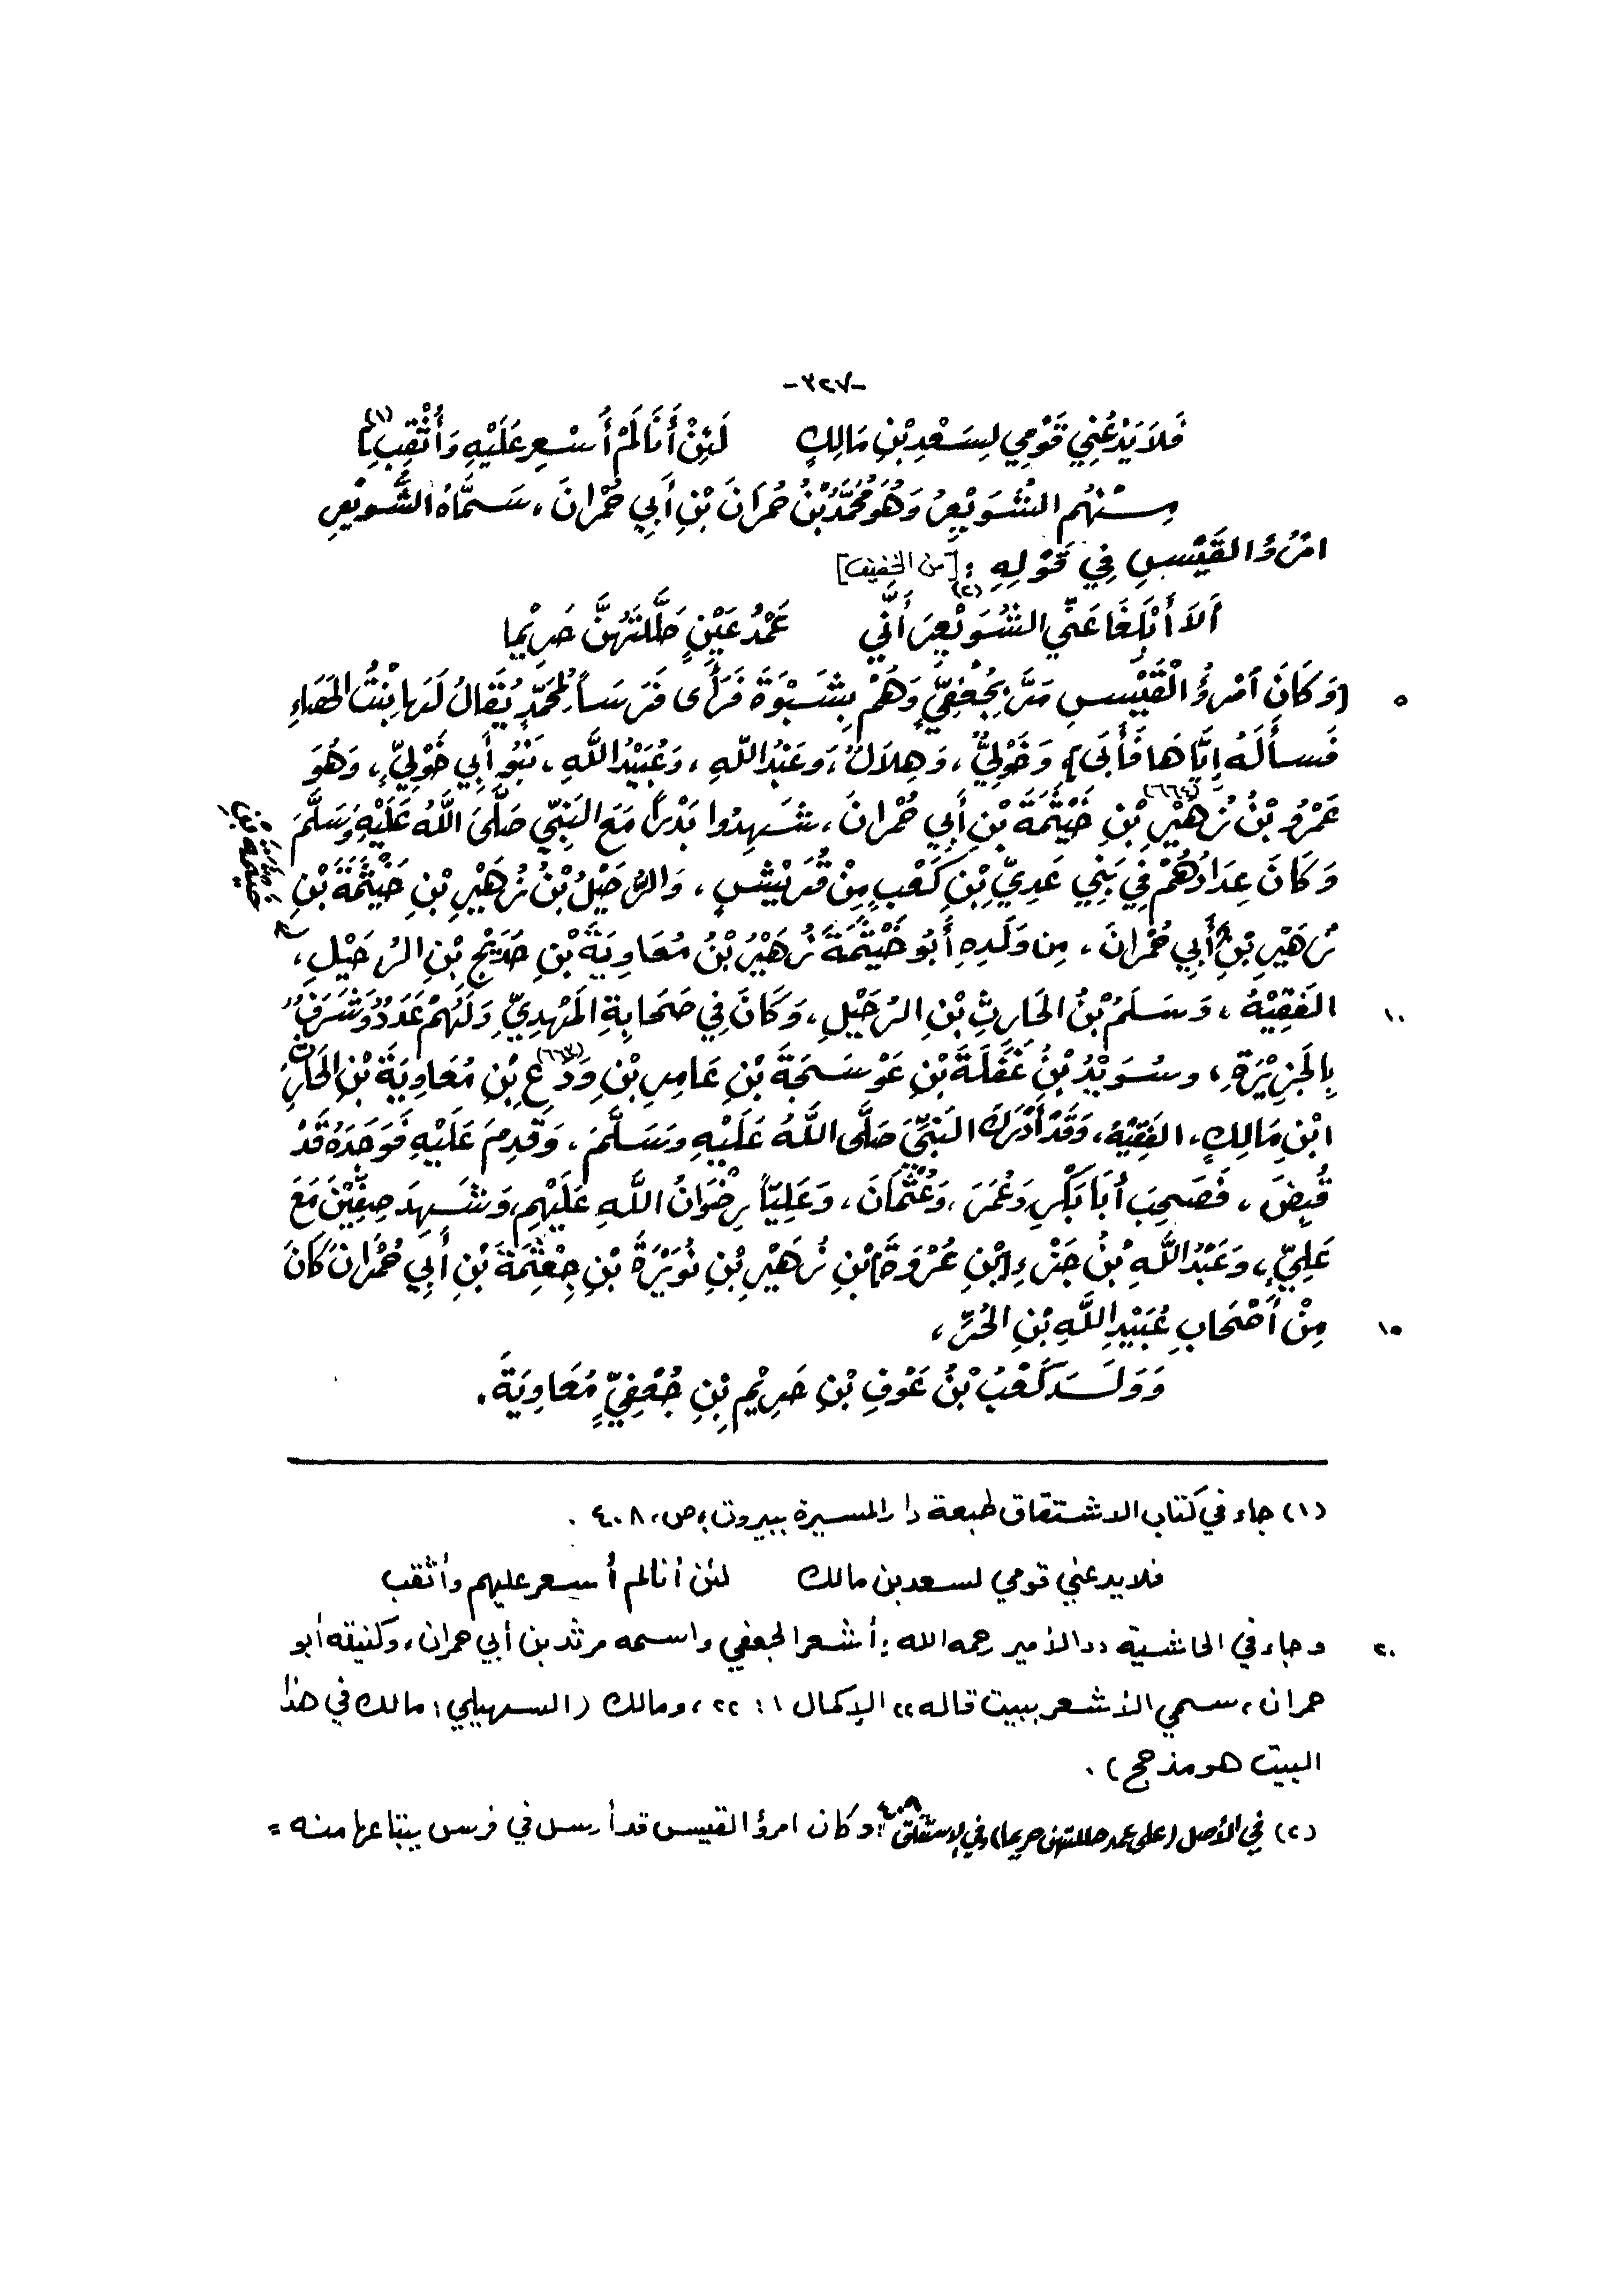 -٣٢٧-
فَلَا يَدْعُنِي قَوْمِي لِسَعْدِ بْنِ مَالِكٍ لَئِنْ أَنَا لَمْ أُسْعِرْ عَلَيْهِ وَأُثْقِبِ](١)
مِنْهُم الشُّوَيْعِرُ وَهُوَ مُحَمَّدُ بْنُ حُمرَانَ بْنِ أَبِي حُمْرانَ، سَمَّاهُ الشُّوَيْعِرَ
امْرُؤُ القَيْسِ فِي قَوْلِهِ: [من الخفيف]
أَلَا أَبْلِغَا عَنِّي الشُّوَيْعِرَ أَنِّي(٢) عَمْدُ عَيْنٍ حَلَّلتَهُنَّ حَرِيْما
٥ [وَكَانَ امْرؤُ الْقَيْسِ مَرَّ بِجُعْفِيٍّ وَهُمْ بِشَبْوَةَ فَرَأَى فَرَساً لِمُحَمَّدٍ يُقَالُ لَهَا بِنْتُ
فَسأَلَهُ إِيَّاهَا فَأَبَى] وَخَوْلِيُّ، وَهِلَالٌ، وَعَبْدُ اللَّهِ، وَعُبَيْدُ اللَّهِ، بَنُو أَبِي خَوْلِيٍّ، وَهُوَ
عَمْرُو بْنُ زُهَيْرِ(٦٦٤) بْنِ خَيْثَمَةَ بْنِ أَبِي حُمْرانَ، شَهِدُوا بَدْرَاً مَعَ النَبِيِّ صَلَّى اللَّهُ عَلَيْهِ وَسَلَّمَ
وَكَانَ عِدَادُهُمْ فِي بَنِي عَدِيِّ بْنِ كَعْبٍ مِنْ قُرَيْشٍ، وَالرُّحَيْلُ بْنُ زُهَيْرِ بْنِ خَيْثَمَةَ بْنِ
زُهَيْرِ بْنِ أَبِي حُمْرانَ، مِن وَلَدِهِ أَبُو خَيْثَمَةَ زُهَيْرُ بْنُ مُعَاوِيَةَ بْنِ حُدَيْجِ بْنِ الرُحَيْلِ،
١٠ الفَقِيْهُ، وَسَلَمُ بْنُ الحَارِثِ بْنِ الرُحَيْلِ، وَكَانَ فِي صَحَابةِ المَهْدِيِّ وَلَهُمْ عَدَدٌ وَشَرَفٌ
بِالجَزِيْرَةِ، وسُوَيْدُ بْنُ غَفَلَةَ بْنِ عَوْسَجَةَ بْنِ عَامِرِ بْنِ وَدَاعِ(٦٦٣) بْنِ مُعَاوِيَةَ بْنِ الحَارِثِ
ابْنِ مَالِكٍ، الفَقِيْهُ، وَقَدْ أَدْرَكَ النَبِيَّ صَلَّى اللَّهُ عَلَيْهِ وسَلَّمَ، وَقَدِمَ عَلَيْهِ فَوَجَدَهُ قَدْ
قُبِضَ، فَصَحِبَ أَبَا بَكْرٍ وَعُمَرَ، وَعُثْمَانَ، وَعَلِيّاً رِضْوَانُ اللَّهِ عَلَيْهِم، وَشَهِدَ صِفِّيْنَ مَعَ
عَلِيٍّ، وَعَبْدُ اللَّهِ بْنُ جَزْءِ [بْنِ عُرْوَةَ] بْنِ زُهَيْرِ بْنِ نُوَيْرَةَ بْنِ جِعْثِمَةَ بْنِ أَبِي حُمْرانَ كَانَ
١٥ مِنْ أَصْحَابِ عُبَيْدِ اللَّهِ بْنِ الحُرِّ،
وَوَلَـدَ كَعْبُ بْنُ عَوْفِ بْنِ حَرِيْمِ بْنِ جُعْفِيٍّ مُعَاوِيَةَ.
(١) جاء في كتاب الاشتقاق طبعة دار المسيرة ببيروت، ص، ٤٠٨.
فلا يدعني قومي لسعد بن مالك لئن أنا لم أسعر عليهم وأثقب
٢٠ وجاء في الحاشية ،، الأمير رحمه الله: أشعر الجعفي واسمه مرثد بن أبي حمران، وكنيته أبو
حمران، سمي الأشعر ببيت قاله ،، الإكمال ١: ٢٢، ومالك (السهيلي: مالك في هذا
البيت هو مذحج).
(٢) في الأصل (على عمد حللتهن حريما) وفي الاشتقاق ٤٠٨: وكان امرؤ القيس قد أرسل في فرس يبتاعها منه =